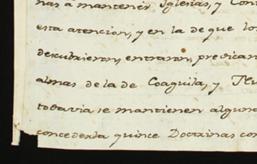 nas á mantener Iglesias, y Con
esta atencion, y en la de que lo
descubrieron, entraron, predican
almas de la de Coaguila, y
todavia se mantienen alguno
concederla quince Doctrinas con